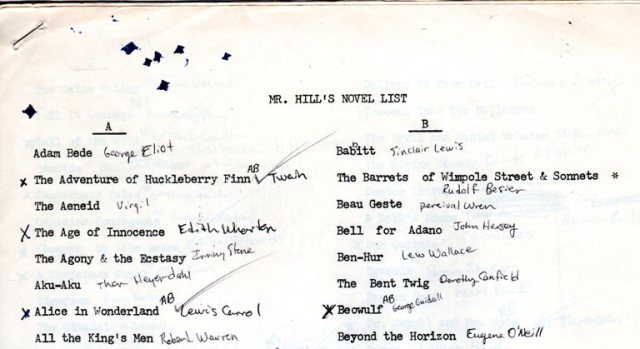 MR. HILL'S NOVEL LIST
A
Adam Bede George Eliot
x The Adventure of Huckleberry Finn AB Twain
The Aeneid Virgil
X The Age of Innocence Edith Wharton
The Agony & the Ecstasy Irving Stone
Aku-Aku Thor Heyerdahl
X Alice in Wonderland AB Lewis Carrol
All the King's Men Robert Warren
B
Babitt Sinclair Lewis
The Barrets of Wimpole Street & Sonnets *
Rudolf Besier
Beau Geste percival Wren
Bell for Adano John Hersey
Ben-Hur Lew Wallace
The Bent Twig Dorothy Canfield
X Beowulf AB George
Beyond the Horizon Eugene O'Neill